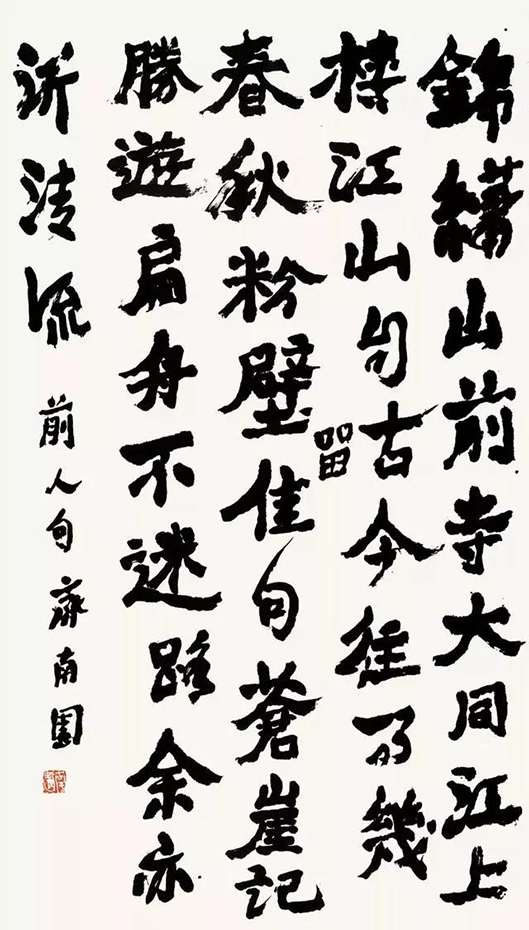 錦繡山前寺大同江上
樓江山自古今往事幾
留
春秋粉壁佳句蒼崖記
勝遊扁舟不迷路余亦
泝清流
前人句 南園